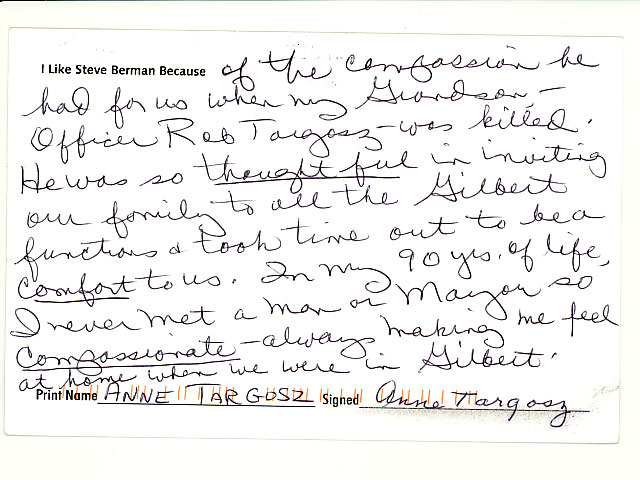 I Like Steve Berman Because of the compassion he
had for us when my Grandson -
Officer Rob Targosz - was killed.
He was so thoughtful in inviting
our family to all the Gilbert
functions & took time out to be a
comfort to us. In my 90 yrs. of life,
I never met a man or Mayor so
compassionate - always making me feel
at home when we were in Gilbert.
Print Name ANNE TARGOSZ Signed Anne Targosz